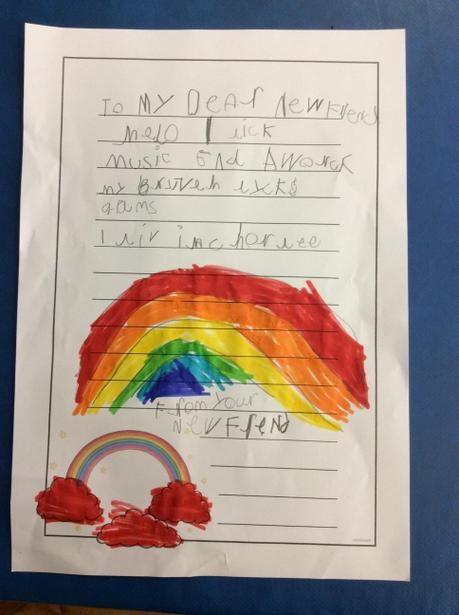 To MY Dear new Frend
helo I lick
music end Aworck
my bruveh licks
gams
I liv in
From your
NEW Frend